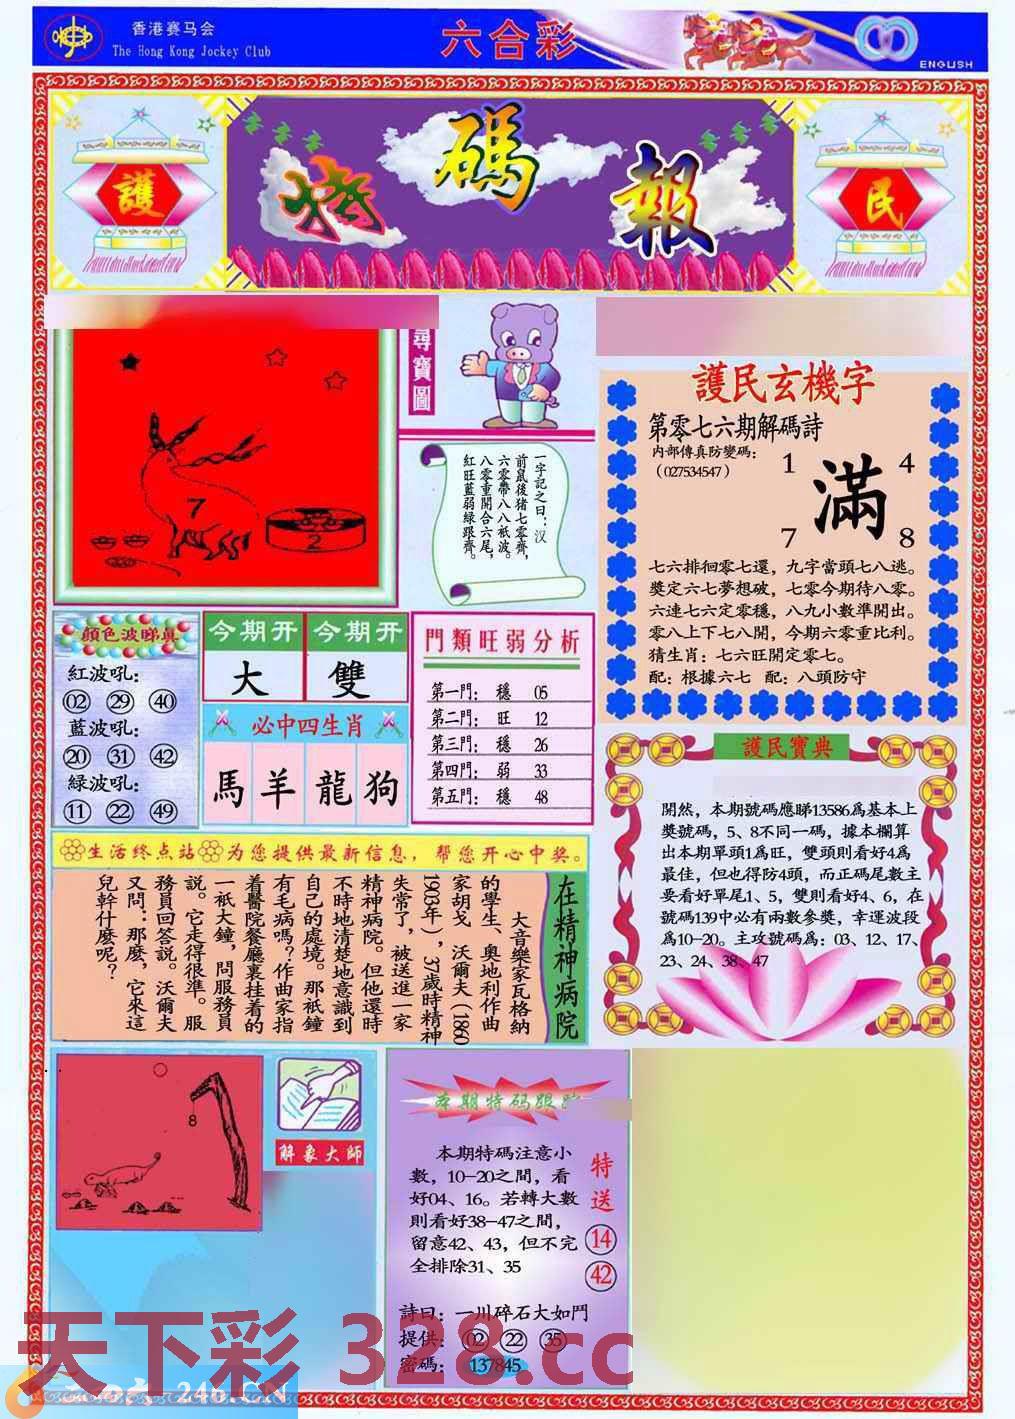 香港赛马会
The Hong Kong Jockey Club
六合彩
ENGLISH
護
特碼報
民
尋寶圖
7
2
一字記之曰：汉
前鼠後猪七零齊，
六零帶八八祇波。
八零重開合六尾，
紅旺藍弱綠跟齊。
護民玄機字
第零七六期解碼詩
内部傳真防變碼：
（027534547）
1
4
滿
7
8
七六排徊零七還，九字當頭七八逃。
獎定六七夢想破，七零今期待八零。
六連七六定零穩，八九小數準開出。
零八上下七八開，今期六零重比利。
猜生肖：七六旺開定零七。
配：根據六七 配：八頭防守
顏色波睇真
紅波吼：
02 29 40
藍波吼：
20 31 42
綠波吼：
11 22 49
今期开 今期开
大 雙
必中四生肖
馬 羊 龍 狗
門類旺弱分析
第一門： 穩 05
第二門： 旺 12
第三門： 穩 26
第四門： 弱 33
第五門： 穩 48
護民寶典
開然，本期號碼應睇13586爲基本上
獎號碼，5、8不同一碼，據本欄算
出本期單頭1爲旺，雙頭則看好4爲
最佳，但也得防4頭，而正碼尾數主
要看好單尾1、5，雙則看好4、6，在
號碼139中必有兩數參獎，幸運波段
爲10-20。主攻號碼爲：03、12、17、
23、24、38、47
生活终点站 为您提供最新信息，帮您开心中奖。
在精神病院
大音樂家瓦格納
的學生、奧地利作曲
家胡戈 沃爾夫（1860
1903年），37歲時精神
失常了，被送進一家
精神病院。但他還時
不時地清楚地意識到
自己的處境。那祇鐘
有毛病嗎？作曲家指
着醫院餐廳裏挂着的
一祇大鐘，問服務員
說。它走得很準。服
務員回答說。沃爾夫
又問：那麼，它來這
兒幹什麼呢？
8
解象大師
本期特码跟踪
本期特码注意小
數，10-20之間，看
好04、16。若轉大數
則看好38-47之間，
留意42、43，但不完
全排除31、35
特送
14
42
詩曰：一川碎石大如門
提供： 02 22 35
密碼： 137845
天下彩 328.cc
二四六 246.CN